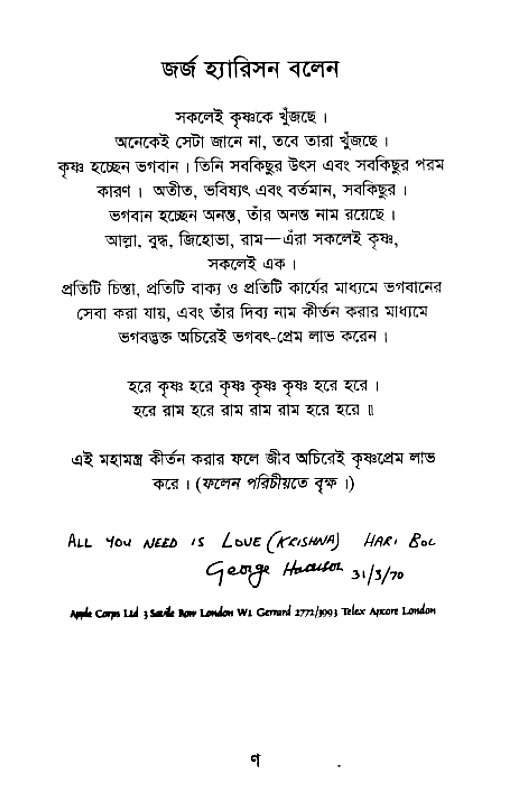 জর্জ হ্যারিসন বলেন
সকলেই কৃষ্ণকে খুঁজছে ।
অনেকেই সেটা জানে না, তবে তারা খুঁজছে ।
কৃষ্ণ হচ্ছেন ভগবান । তিনি সবকিছুর উৎস এবং সবকিছুর পরম
কারণ । অতীত, ভবিষ্যৎ এবং বর্তমান, সবকিছুর ।
ভগবান হচ্ছেন অনন্ত, তাঁর অনন্ত নাম রয়েছে ।
আল্লা, বুদ্ধ, জিহোভা, রাম—এঁরা সকলেই কৃষ্ণ,
সকলেই এক ।
প্রতিটি চিন্তা, প্রতিটি বাক্য ও প্রতিটি কার্যের মাধ্যমে ভগবানের
সেবা করা যায়, এবং তাঁর দিব্য নাম কীর্তন করার মাধ্যমে
ভগবদ্ভক্ত অচিরেই ভগবৎ-প্রেম লাভ করেন ।
হরে কৃষ্ণ হরে কৃষ্ণ কৃষ্ণ কৃষ্ণ হরে হরে ।
হরে রাম হরে রাম রাম রাম হরে হরে ॥
এই মহামন্ত্র কীর্তন করার ফলে জীব অচিরেই কৃষ্ণপ্রেম লাভ
করে । (ফলেন পরিচীয়তে বৃক্ষ ।)
ALL YOU NEED IS LOVE (KRISHNA) HARI BOL
George Harrison 31/3/70
Apple Corps Ltd 3 Savile Row London W1 Gerrard 2772/3993 Telex Apcore London
ণ